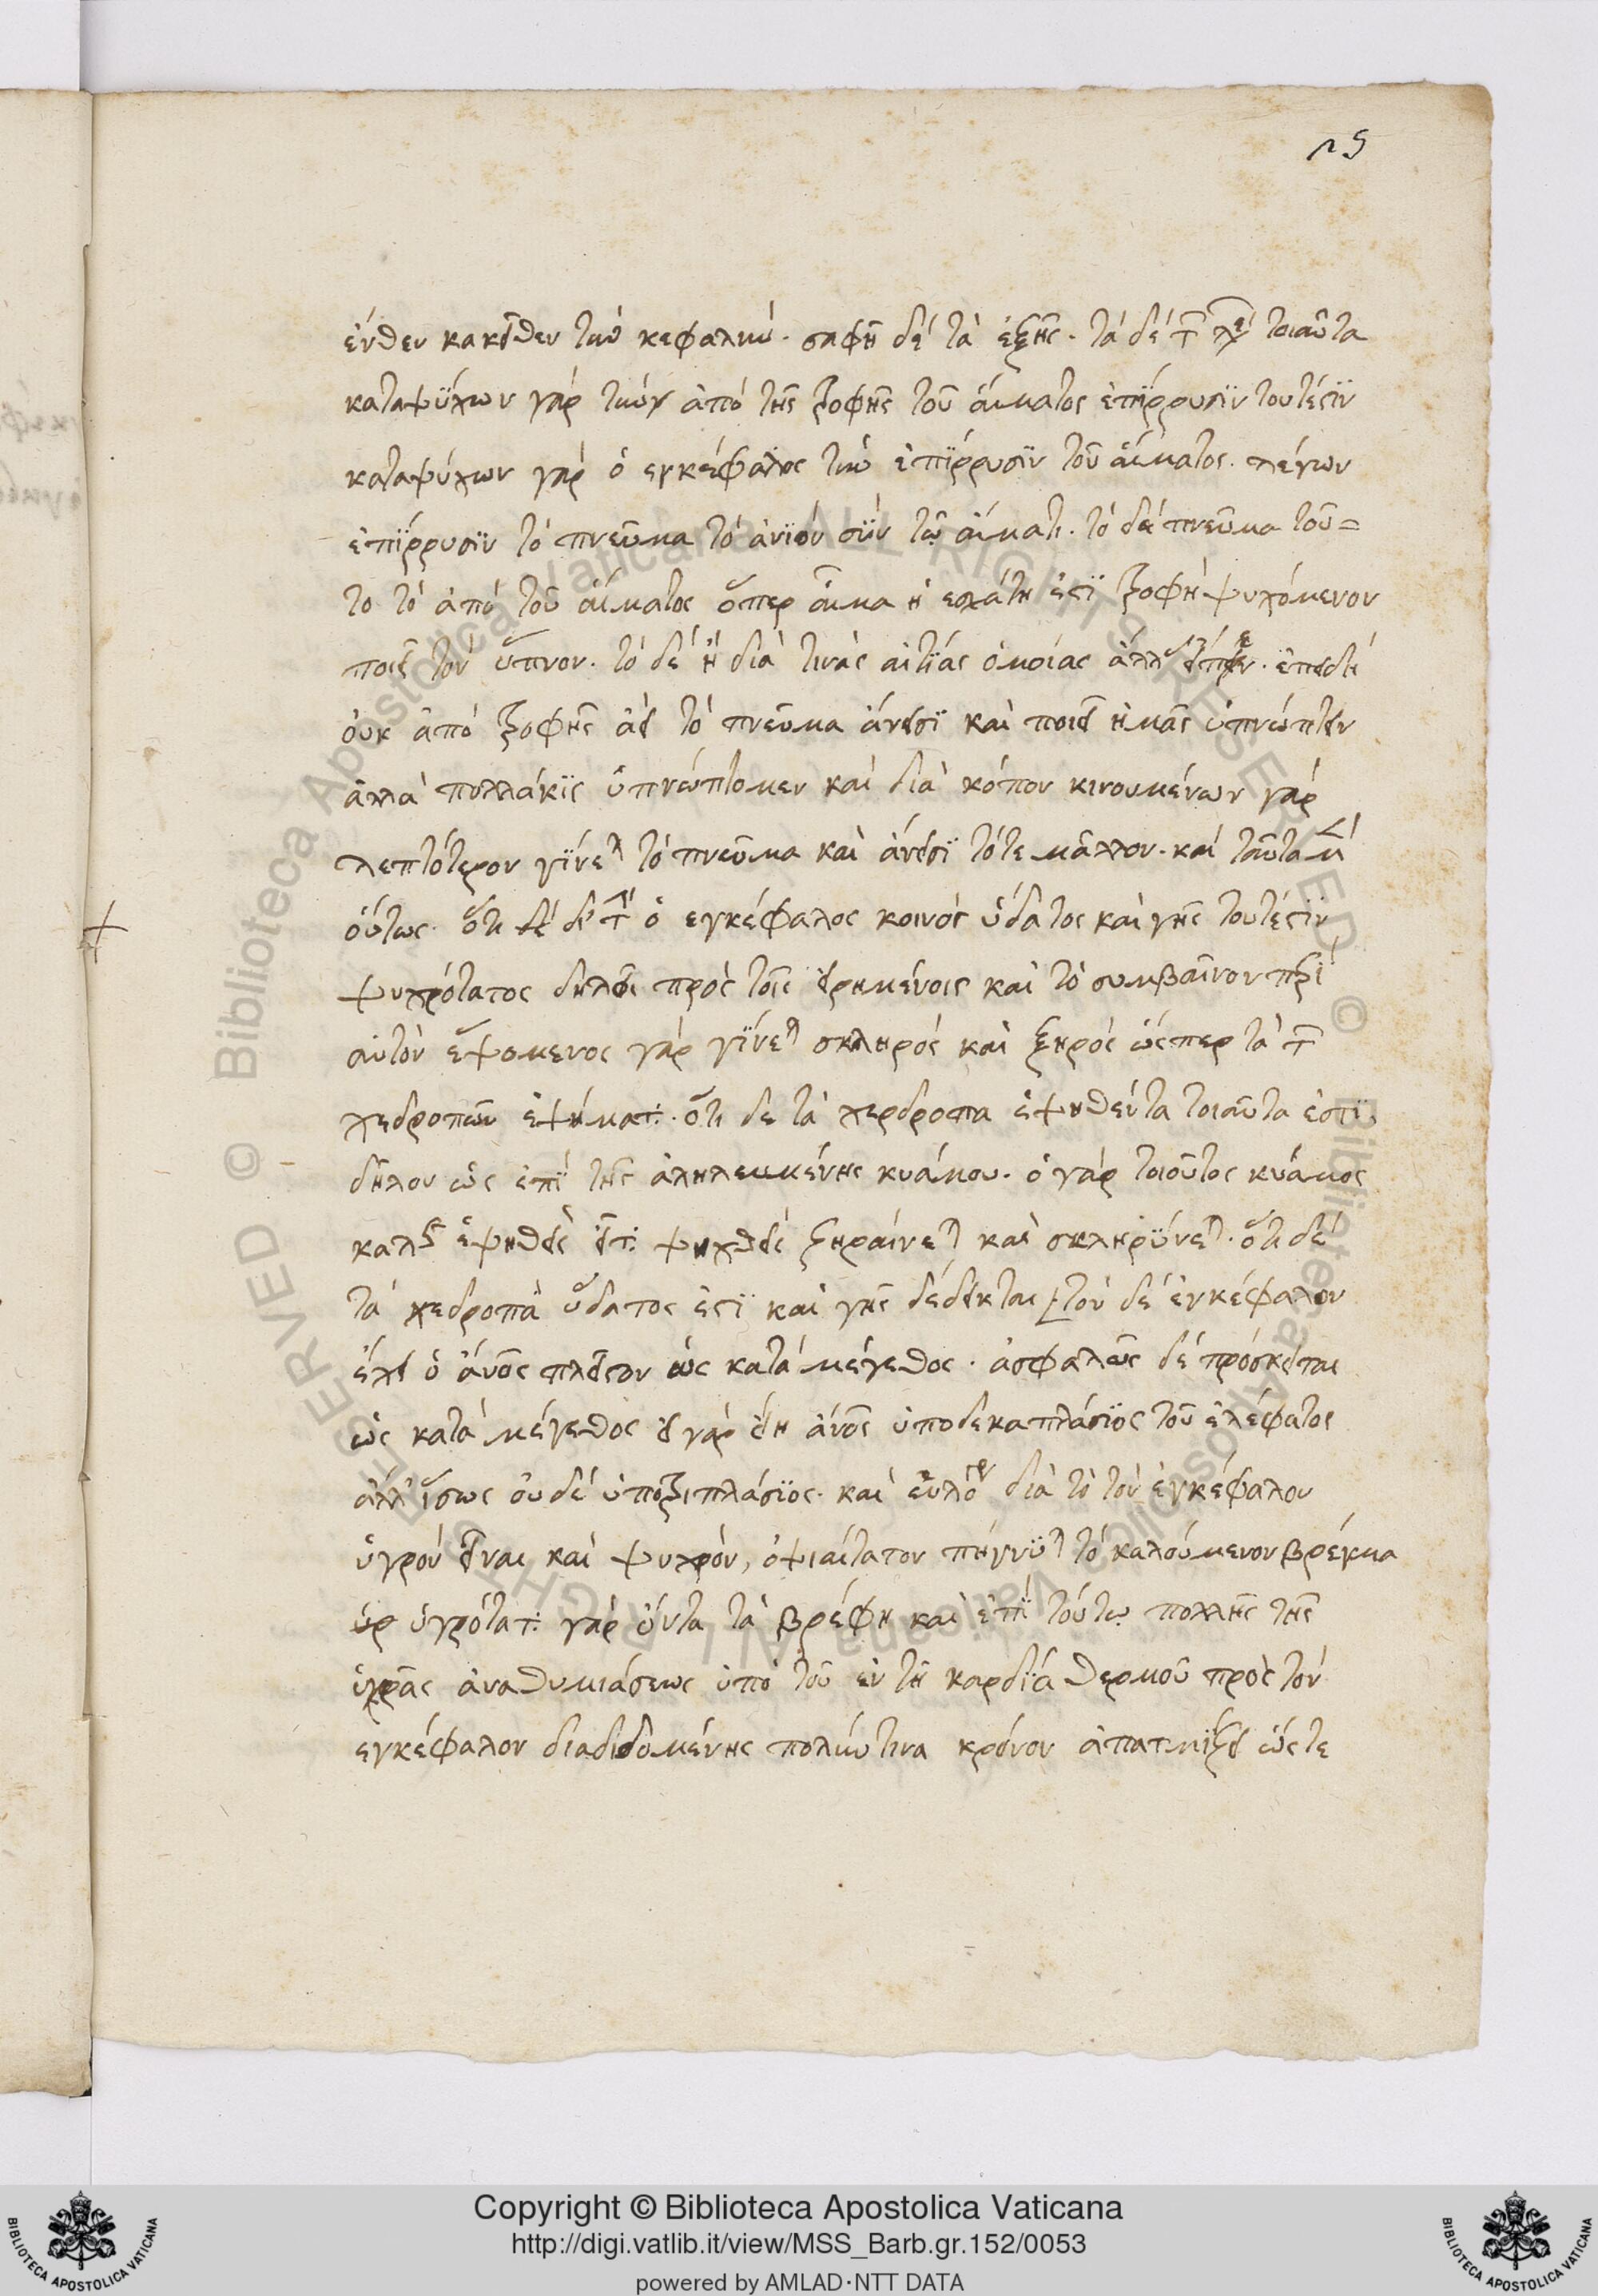 ἔνθεν κακεῖθεν τὴν κεφαλήν. σαφῆ δέ τὰ ἑξῆς. τὰ δέ τοιαῦτα
καταψύχων γάρ τὴν ἀπό τῆς τροφῆς τοῦ αἵματος ἐπίρρυσϊν τουτέστϊν
καταψύχων γάρ ὁ εγκέφαλος τὴν ἐπϊρρυσϊν τοῦ αἵματος. λέγων
ἐπϊρρυσϊν τὸ πνεῦμα τὸ ἀνϊόν σϋν τῷ αἵματι. τὸ δέ πνεῦμα τοῦ=
το τὸ ἀπό τοῦ αἵματος ὅπερ αἷμα ἡ εσχάτη ἐστϊ τροφή ψυχόμενον
ποιεῖ τόν ὕπνον. τὸ δέ ἢ διὰ τινὰς αἰτϊας ὁμοίας ἄλλας εἶπεν. ἐπειδή
ὀυκ ἀπό τροφῆς ἀεὶ τὸ πνεῦμα ἄνεισϊ καὶ ποιεῖ ἡμᾶς ὑπνώττειν
ἀλλὰ πολλάκϊς ὑπνώττομεν καὶ διὰ κόπον κινουμένων γάρ
λεπτότερον γϊνεται τὸ πνεῦμα καὶ ἄνεισϊ τότε μᾶλλον. καί ταῦτα μέν
ὅυτως. ὅτι δ' ἐστὶν ὁ εγκέφαλος κοινός ὕδατος καὶ γῆς τουτέστϊν
ψυχρότατος δηλοῖ πρὸς τοῖς ειρημένοις καὶ τὸ συμβαῖνον περί
αὐτόν ἑψομενος γάρ γϊνεται σκληρός καὶ ξηρός ὥσπερ τὰ τῶν
χεδροπῶν ἑψήματα. ὅτι δε τὰ χερδροπα ἑψηθέντα τοιαῦτα ἐστϊ
δῆλον ὡς ἐπϊ τῆς ἀληλεσμένης κυάμου. ὁ γάρ τοιοῦτος κυάμος
καλῶς ἑψηθείς εἶτα ψυχθείς ξηραίνεται καὶ σκληρϋνεται. ὅτι δέ
τὰ χεδροπὰ ὕδατος ἐστϊ καὶ γῆς δέδεικται τόν δέ ἐγκέφαλον
ἔχει ὁ ἄνος πλεῖστον ὡς κατά μέγεθος. ἀσφαλῶς δέ πρόσκειται
ὡς κατά μέγεθος εἰ γάρ εἴη ἄνος ὑποδεκαπλάσϊος τοῦ ἐλέφατος
ἀλλ' ἴσως ὀυδέ ὑποτριπλάσϊος. καὶ εὔλογον διὰ τὸ τόν ἐγκέφαλον
ὑγρόν εἶναι καὶ ψυχρόν, ὀψιαίτατον πήγνϋται τὸ καλούμενον βρέγμα
ὑγρότατα γάρ ὄντα τὰ βρέφη καὶ ἐπϊ τούτῳ πολλῆς τῆς
ὑγρᾶς ἀναθυμιάσεως ὑπό τοῦ ἐν τῇ καρδϊᾳ θερμοῦ πρὸς τόν
εγκέφαλον διαδιδομένης πολύν τινα χρόνον ἀπατμϊζει ὥστε
Copyright © Biblioteca Apostolica Vaticana
http://digi.vatlib.it/view/MSS_Barb.gr.152/0053
powered by AMLAD·NTT DATA